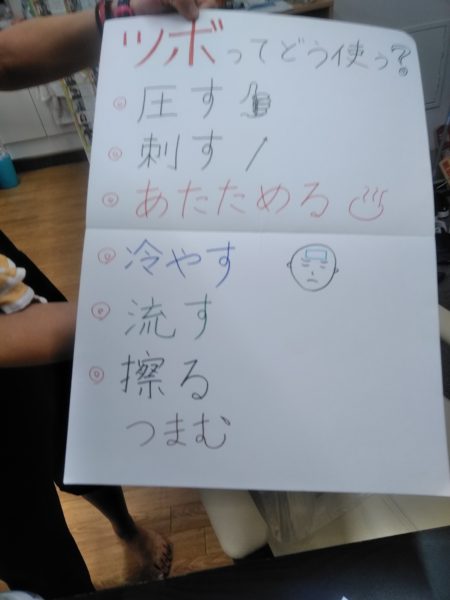 ツボってどう使う?
圧す
刺す
あたためる
冷やす
流す
擦る
つまむ